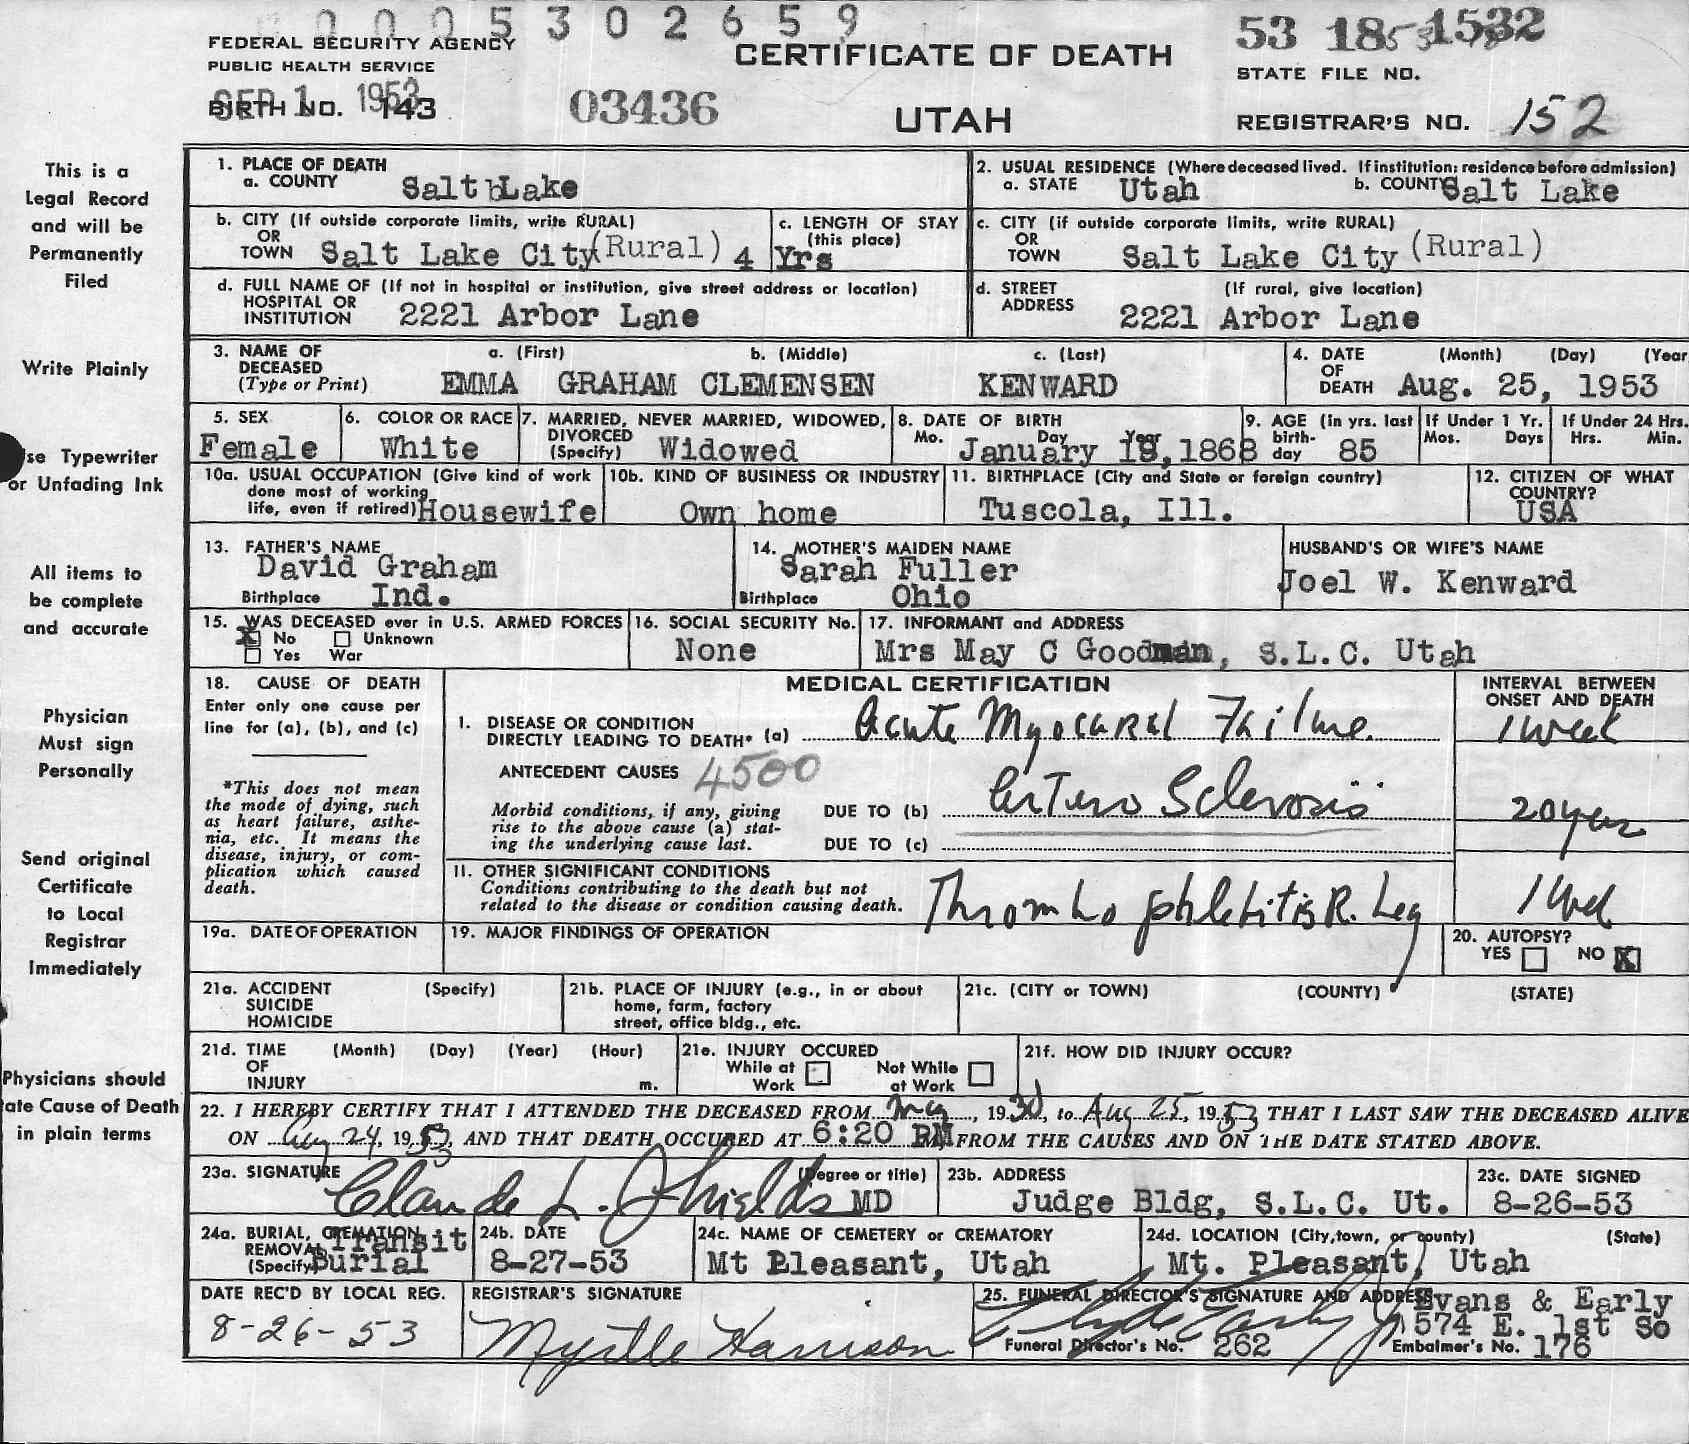 0005302659
53 18 1532
FEDERAL SECURITY AGENCY
PUBLIC HEALTH SERVICE
CERTIFICATE OF DEATH
STATE FILE NO.
SEP 1 1953
BIRTH NO. 143
03436
UTAH
REGISTRAR'S NO. 152
This is a
Legal Record
and will be
Permanently
Filed
Write Plainly
se Typewriter
or Unfading Ink
All items to
be complete
and accurate
Physician
Must sign
Personally
Send original
Certificate
to Local
Registrar
Immediately
Physicians should
ate Cause of Death
in plain terms
1. PLACE OF DEATH
a. COUNTY Salt Lake
2. USUAL RESIDENCE (Where deceased lived. If institution: residence before admission)
a. STATE Utah b. COUNTY Salt Lake
b. CITY (If outside corporate limits, write RURAL)
OR
TOWN Salt Lake City (Rural)
c. LENGTH OF STAY
(this place)
4 Yrs
c. CITY (if outside corporate limits, write RURAL)
OR
TOWN Salt Lake City (Rural)
d. FULL NAME OF (If not in hospital or institution, give street address or location)
HOSPITAL OR
INSTITUTION 2221 Arbor Lane
d. STREET (If rural, give location)
ADDRESS 2221 Arbor Lane
3. NAME OF DECEASED
(Type or Print)
a. (First) b. (Middle) c. (Last)
EMMA GRAHAM CLEMENSEN KENWARD
4. DATE OF DEATH (Month) (Day) (Year
Aug. 25, 1953
5. SEX
Female
6. COLOR OR RACE
White
7. MARRIED, NEVER MARRIED, WIDOWED,
DIVORCED
(Specify) Widowed
8. DATE OF BIRTH
Mo. Day Year
January 18, 1868
9. AGE (in yrs. last
birth-
day 85
If Under 1 Yr.
Mos. Days
If Under 24 Hrs.
Hrs. Min.
10a. USUAL OCCUPATION (Give kind of work
done most of working
life, even if retired) Housewife
10b. KIND OF BUSINESS OR INDUSTRY
Own home
11. BIRTHPLACE (City and State or foreign country)
Tuscola, Ill.
12. CITIZEN OF WHAT
COUNTRY?
USA
13. FATHER'S NAME
David Graham
Birthplace Ind.
14. MOTHER'S MAIDEN NAME
Sarah Fuller
Birthplace Ohio
HUSBAND'S OR WIFE'S NAME
Joel W. Kenward
15. WAS DECEASED ever in U.S. ARMED FORCES
X No Unknown
Yes War
16. SOCIAL SECURITY No.
None
17. INFORMANT and ADDRESS
Mrs May C Goodman, S.L.C. Utah
18. CAUSE OF DEATH
Enter only one cause per
line for (a), (b), and (c)
*This does not mean
the mode of dying, such
as heart failure, asthe-
nia, etc. It means the
disease, injury, or com-
plication which caused
death.
MEDICAL CERTIFICATION
INTERVAL BETWEEN
ONSET AND DEATH
1. DISEASE OR CONDITION
DIRECTLY LEADING TO DEATH* (a) Acute Myocaral Failure. 1 week
ANTECEDENT CAUSES 4500
Morbid conditions, if any, giving
rise to the above cause (a) stat-
ing the underlying cause last.
DUE TO (b) Artero Sclerosis 20 year
DUE TO (c)
11. OTHER SIGNIFICANT CONDITIONS
Conditions contributing to the death but not
related to the disease or condition causing death.
Thrombo phlebitis R. Leg
19a. DATE OF OPERATION
19. MAJOR FINDINGS OF OPERATION
20. AUTOPSY?
YES NO X
21a. ACCIDENT (Specify)
SUICIDE
HOMICIDE
21b. PLACE OF INJURY (e.g., in or about
home, farm, factory
street, office bldg., etc.
21c. (CITY or TOWN) (COUNTY) (STATE)
21d. TIME (Month) (Day) (Year) (Hour)
OF
INJURY m.
21e. INJURY OCCURED
While at Work Not While at Work
21f. HOW DID INJURY OCCUR?
22. I HEREBY CERTIFY THAT I ATTENDED THE DECEASED FROM , 1930, to Aug 25, 1953 THAT I LAST SAW THE DECEASED ALIVE
ON Aug 24, 1953, AND THAT DEATH OCCURED AT 6:20 PM FROM THE CAUSES AND ON THE DATE STATED ABOVE.
23a. SIGNATURE (Degree or title)
Claude L. Shields MD
23b. ADDRESS
Judge Bldg, S.L.C. Ut.
23c. DATE SIGNED
8-26-53
24a. BURIAL, CREMATION,
REMOVAL
(Specify) Transit
Burial
24b. DATE
8-27-53
24c. NAME OF CEMETERY or CREMATORY
Mt Pleasant, Utah
24d. LOCATION (City, town, or county) (State)
Mt. Pleasant, Utah
DATE REC'D BY LOCAL REG.
8-26-53
REGISTRAR'S SIGNATURE
Myrtle Harrison
25. FUNERAL DIRECTOR'S SIGNATURE AND ADDRESS
Evans & Early
574 E. 1st So
Funeral Director's No. 262
Embalmer's No. 176